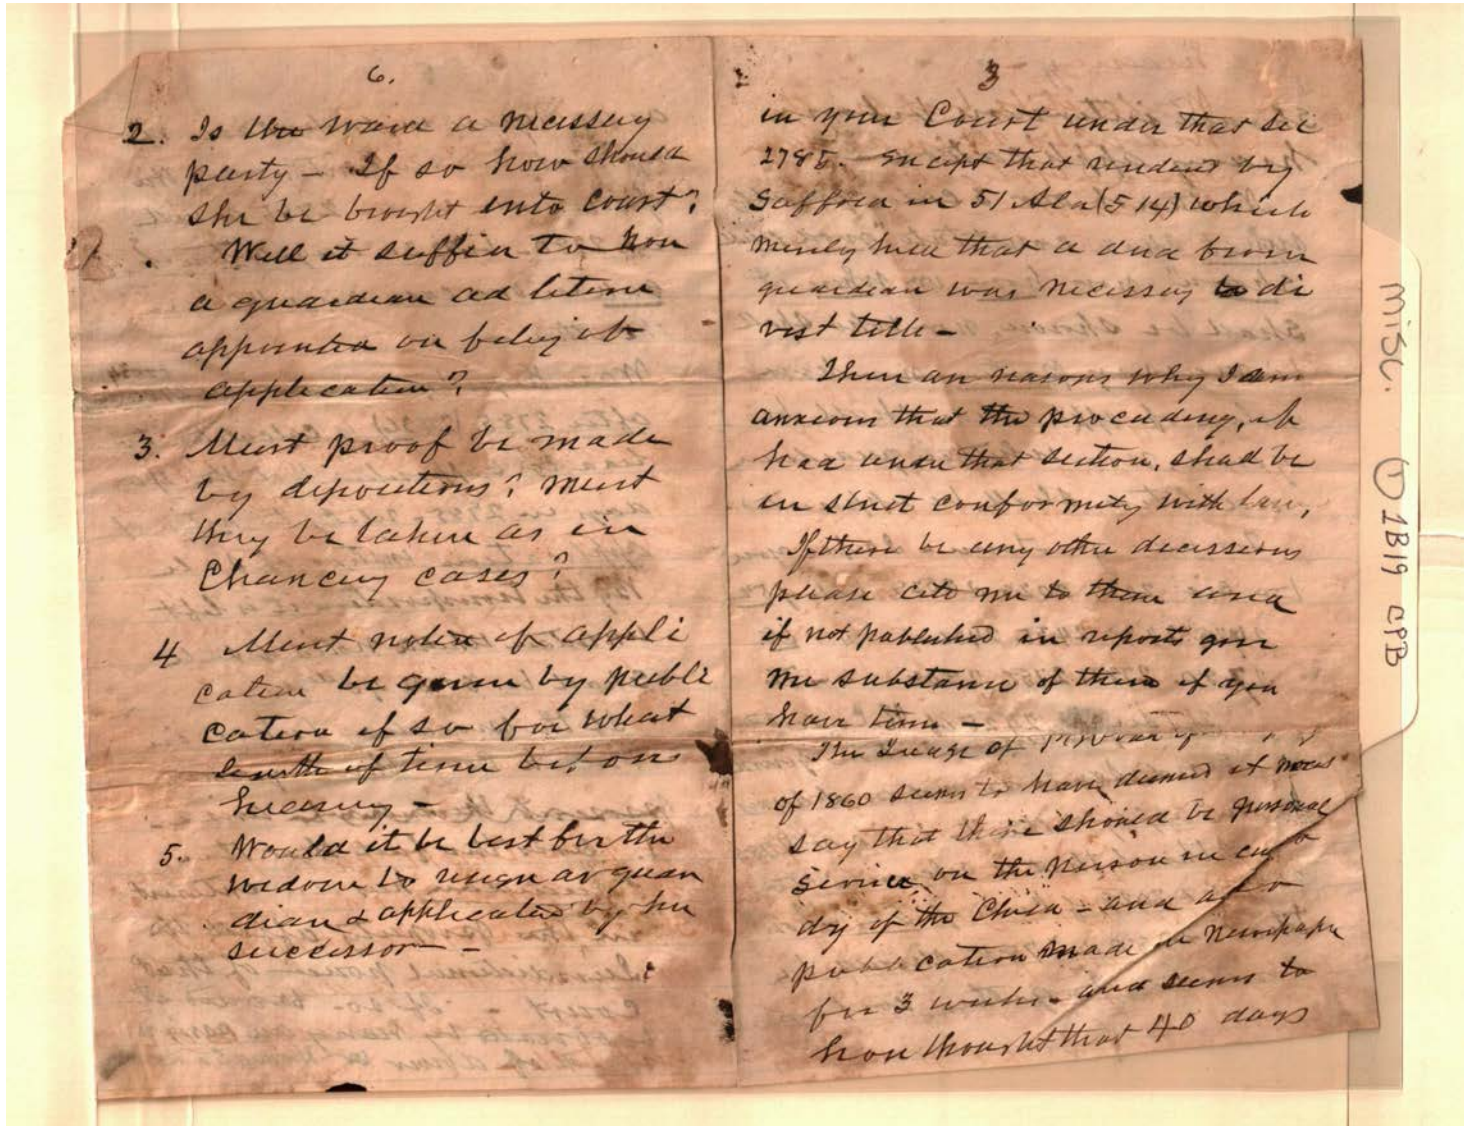 6.
2. Is the ward a necessary
party - If so how should
she be brought into Court?
Will it suffice to have
a guardian ad litem
appointed on filing of
application?
3. Must proof be made
by depositions? Must
they be taken as in
Chancery cases?
4 Must notice of appli
cation be given by publi
cation if so for what
length of time before
hearing -
5. Would it be best for the
widow to resign as guar
dian & application by her
successor -
3
in your Court under that sec
2785. Except that rendered by
Saffold in 51 Ala (514) which
merely held that a deed from
guardian was necessary to di
vest title -
There are reasons why I am
anxious that the proceeding, if
had under that section, shall be
in strict conformity with law,
If there be any other decissions
please cite me to them and
if not published in reports give
me substance of them if you
have time -
The Judge of Probate
of 1860 seems to have deemed it neces
sary that there should be personal
service on the person in custo
dy of the Child - and also
publication made in newspaper
for 3 weeks - and seems to
have thought that 40 days
Misc. ① 1B19 CPB